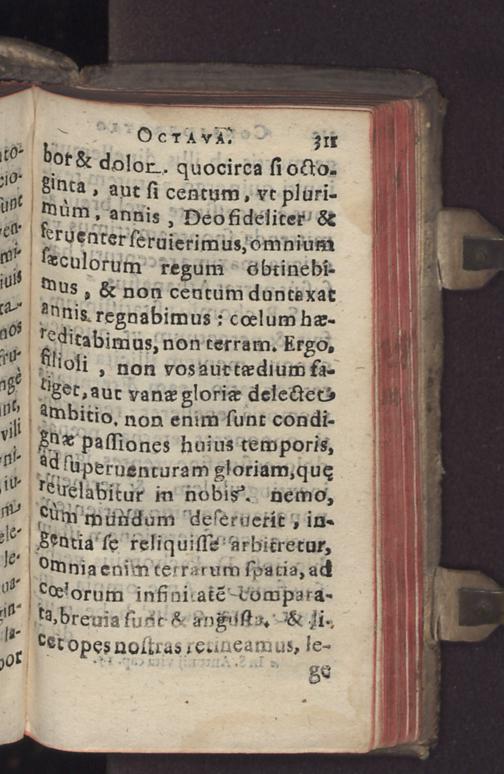 OCTAVA. 311
bor & dolor. quocirca si octo-
ginta, aut si centum, vt pluri-
mùm, annis, Deo fideliter &
feruenter seruierimus, omnium
sæculorum regum obtinebi-
mus, & non centum duntaxat
annis regnabimus: cœlum hæ-
reditabimus, non terram. Ergo,
filioli, non vos aut tædium fa-
tiget, aut vanæ gloriæ delectet
ambitio. non enim sunt condi-
gnæ passiones huius temporis,
ad superuenturam gloriam, quę
reuelabitur in nobis. nemo,
cùm mundum deseruerit, in-
gentia se reliquisse arbitretur,
omnia enim terrarum spatia, ad
cœlorum infinitatē compara-
ta, breuia sunt & angusta. & li-
cet opes nostras retineamus, le-
ge